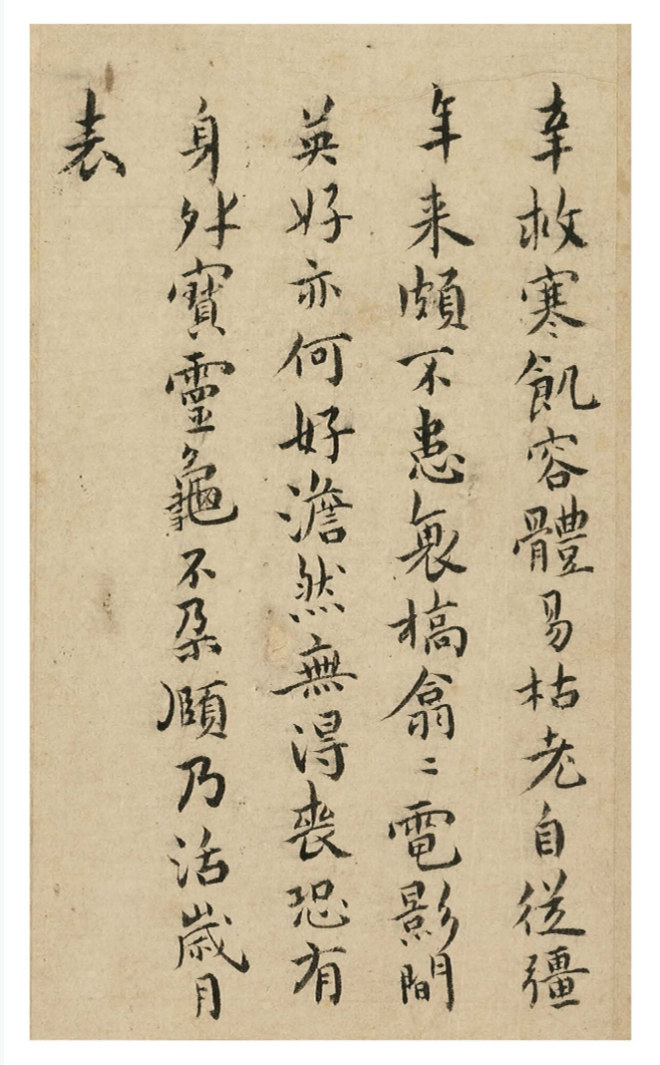 幸救寒飢容體易枯老自従彊
年来頗不患衰槁翕〻電影間
英好亦何好澹然無得喪恐有
身外寶靈龜不朶頤乃活歳月
表